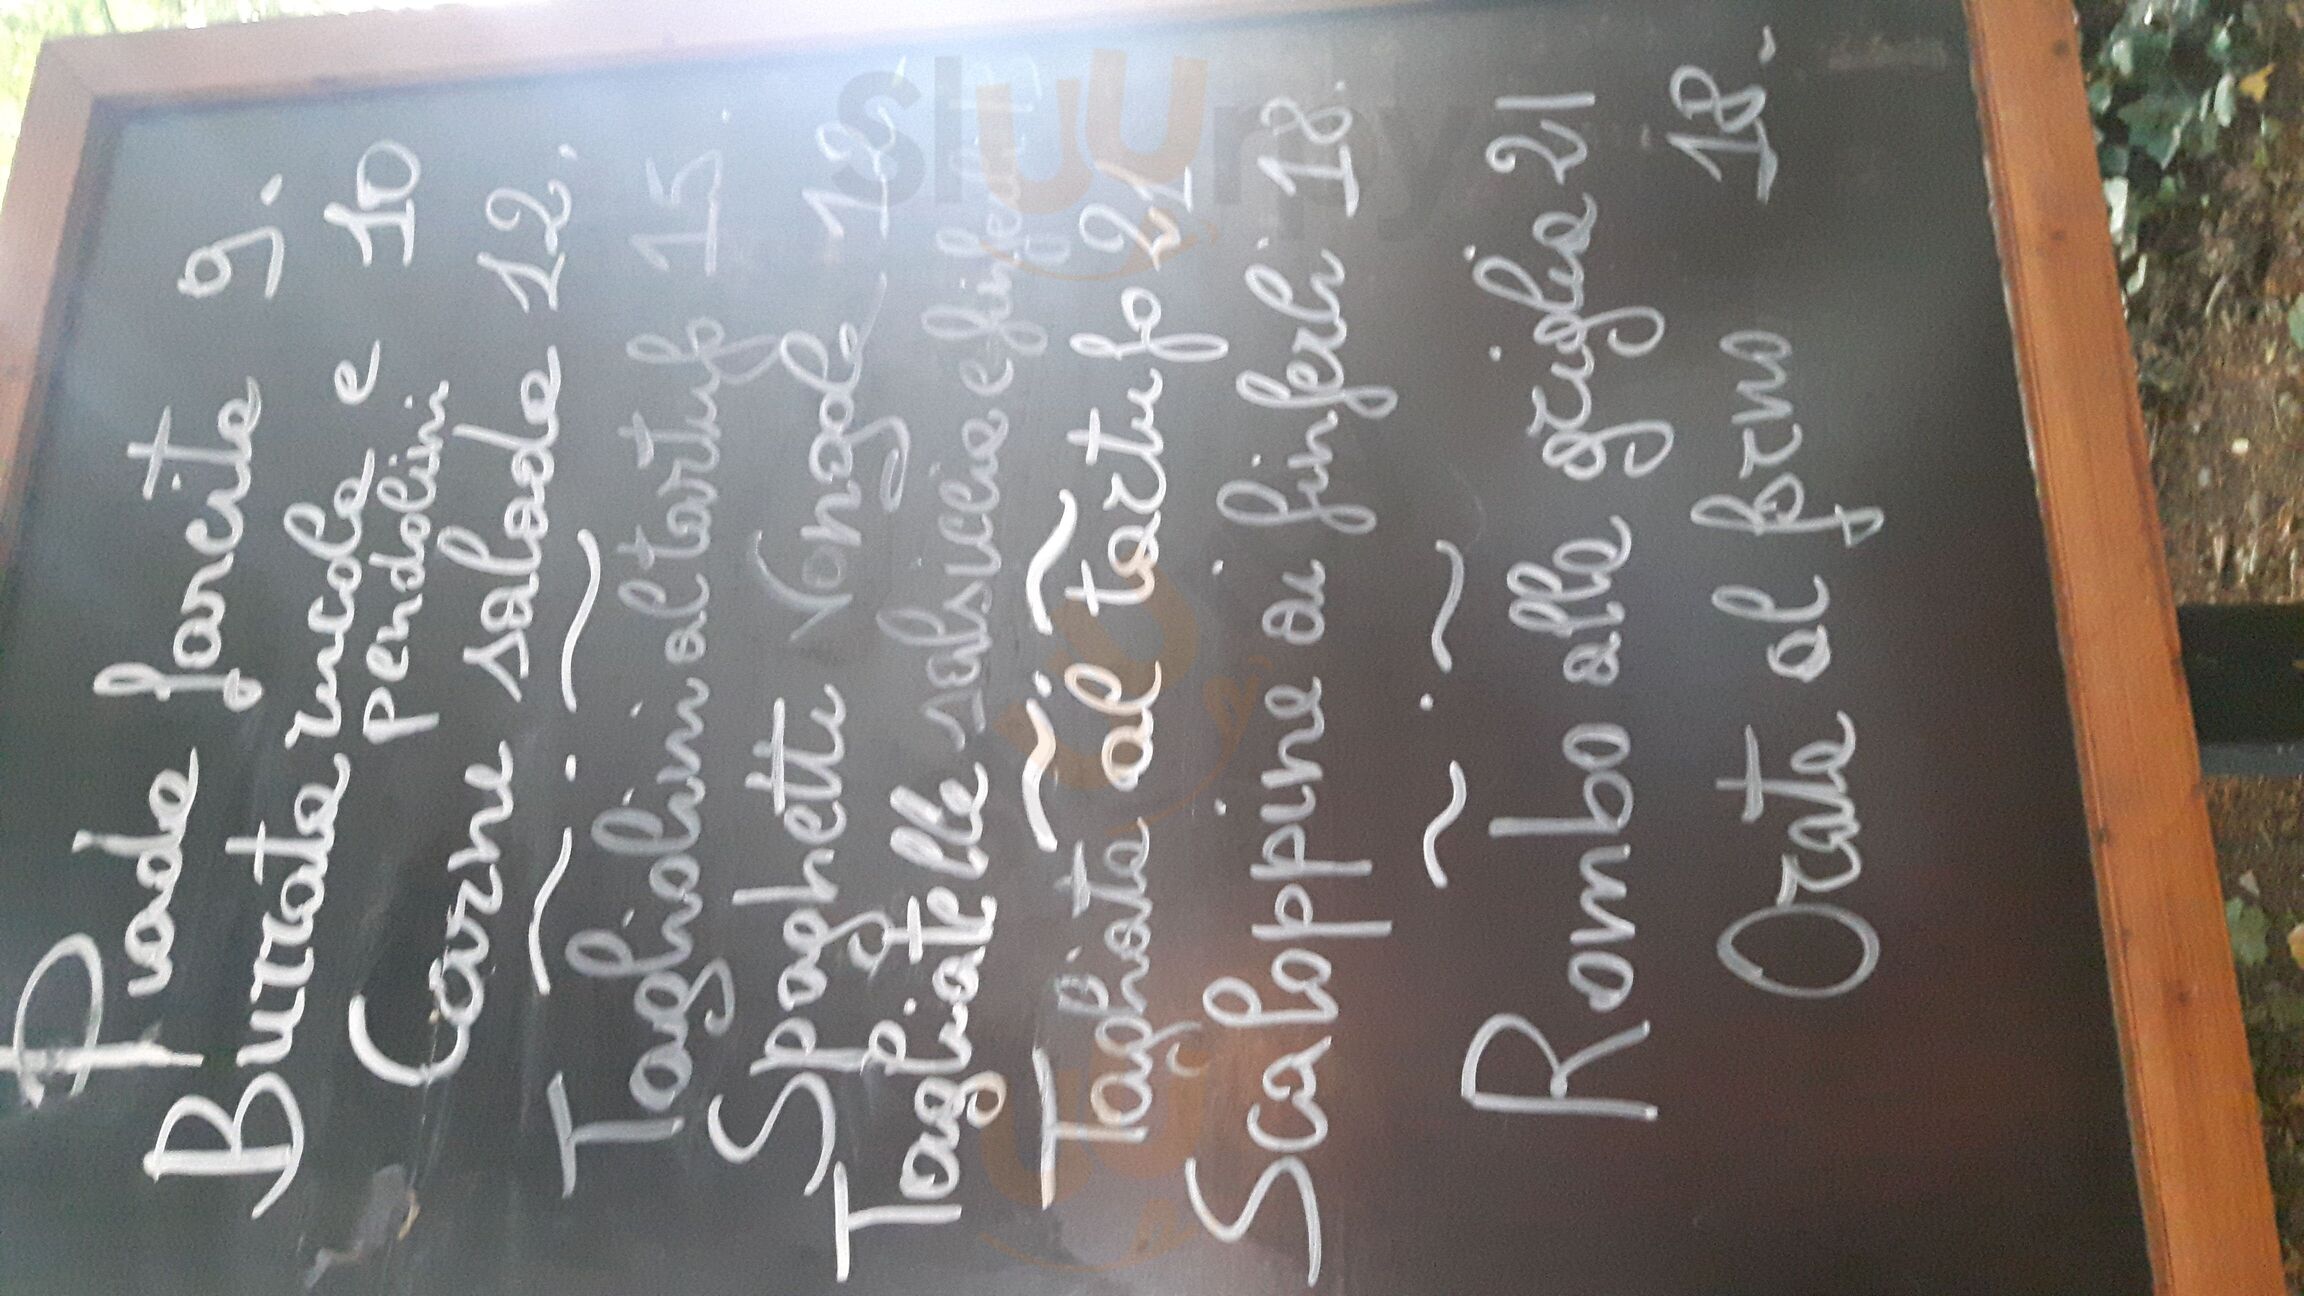 Piada farcita 9.
Burrata rucola e 10
pendolini
Carne salada 12.
Tagliolini al tartufo 15.
Spaghetti Vongole
Tagliatelle salsiccia e
Tagliata al tartufo 21
Scaloppine ai finferli 18.
Rombo alla griglia 21
Orata al forno 18-
Sluurpy